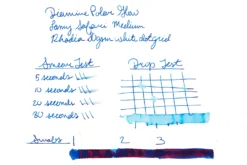 Diamine Polar Glow
Lamy Safari Medium
Rhodia 80gsm white dotgrid
Smear Test
Drip Test
5 seconds
10 seconds
20 seconds
30 seconds
Swabs 1 2 3